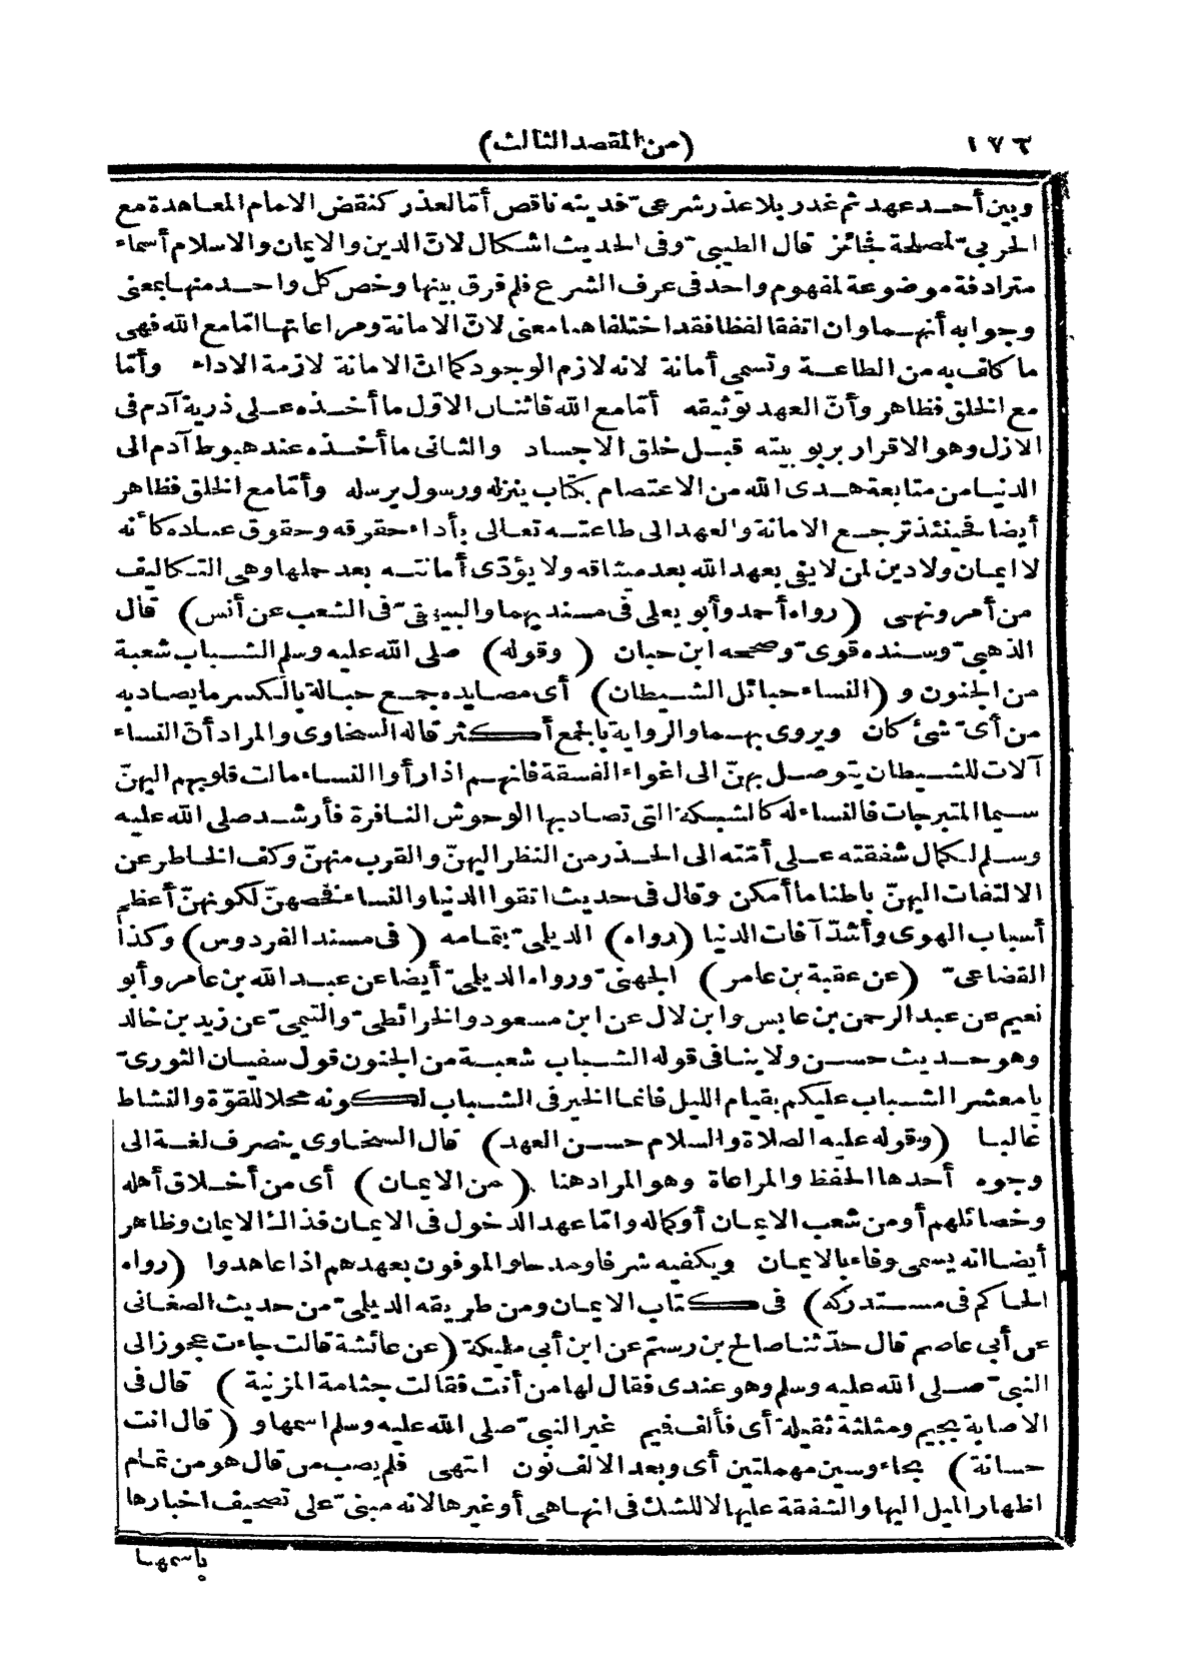 ١٧٦ (من المقصد الثالث)
وبين أحد عهد ثم غدر بلا عذر شرعىّ فدينه ناقص أمّا لعذر كنقض الامام المعاهدة مع
الحربىّ لمصلحة فجائز قال الطيبىّ وفى الحديث اشكال لانّ الدين والايمان والاسلام أسماء
مترادفة موضوعة لمفهوم واحد فى عرف الشرع فلم فرق بينها وخص كل واحد منها بمعنى
وجوابه أنهما وان اتفقا لفظا فقد اختلفا هنا معنى لانّ الامانة ومراعاتها امّا مع الله فهى
ما كلف به من الطاعة وتسمى أمانة لانه لازم الوجود كما انّ الامانة لازمة الاداء وأمّا
مع الخلق فظاهر وأنّ العهد توثيقه أمّا مع الله فاثنان الاوّل ما أخذه على ذرية آدم فى
الازل وهو الاقرار بربوبيته قبل خلق الاجساد والثانى ما أخذه عند هبوط آدم الى
الدنيا من متابعة هدى الله من الاعتصام بكتاب ينزله ورسول يرسله وأمّا مع الخلق فظاهر
أيضا فحينئذ ترجع الامانة والعهد الى طاعته تعالى بأداء حقوقه وحقوق عباده كأنه
لا ايمان ولا دين لمن لا يفى بعهد الله بعد ميثاقه ولا يؤدّى أمانته بعد حملها وهى التكاليف
من أمر ونهى (رواه أحمد وأبو يعلى فى مسنديهما والبيهقىّ فى الشعب عن أنس) قال
الذهبىّ وسنده قوىّ وصححه ابن حبان (وقوله) صلى الله عليه وسلم الشباب شعبة
من الجنون و (النساء حبائل الشيطان) أى مصايده جمع حبالة بالكسر ما يصاد به
من أىّ شئ كان ويروى بهما والرواية بالجمع أكثر قاله السخاوى والمراد أنّ النساء
آلات للشيطان يتوصل بهنّ الى اغواء الفسقة فانهم اذا رأوا النساء مالت قلوبهم اليهنّ
سيما المتبرجات فالنساء له كالشبكة التى تصاد بها الوحوش النافرة فأرشد صلى الله عليه
وسلم لكمال شفقته على أمّته الى الحذر من النظر اليهنّ والقرب منهنّ وكف الخاطر عن
الالتفات اليهنّ باطنا ما أمكن وقال فى حديث اتقوا الدنيا والنساء فخصهنّ لكونهنّ أعظم
أسباب الهوى وأشدّ آفات الدنيا (رواه) الديلىّ بتمامه (فى مسند الفردوس) وكذا
القضاعىّ (عن عقبة بن عامر) الجهنىّ ورواه الديلىّ أيضا عن عبد الله بن عامر وأبو
نعيم عن عبد الرحمن بن عابس وابن لال عن ابن مسعود والخرائطىّ والتيمىّ عن زيد بن خالد
وهو حديث حسن ولا ينافى قوله الشباب شعبة من الجنون قول سفيان الثورىّ
يا معشر الشباب عليكم بقيام الليل فانما الخير فى الشباب لكونه محلا للقوّة والنشاط
غالبا (وقوله عليه الصلاة والسلام حسن العهد) قال السخاوى ينصرف لغة الى
وجوه أحدها الحفظ والمراعاة وهو المراد هنا (من الايمان) أى من أخلاق أهله
وخصائلهم أو من شعب الايمان أو كماله وامّا عهد الدخول فى الايمان فذالك الايمان وظاهر
أيضا انه يسمى وفاء بالايمان ويكفيه شرفا ومدحا والموفون بعهدهم اذا عاهدوا (رواه
الحاكم فى مستدركه) فى كتاب الايمان ومن طريقه الديلىّ من حديث الصغانى
عن أبى عاصم قال حدّثنا صالح بن رستم عن ابن أبى مليكة (عن عائشة قالت جاءت عجوز الى
النبىّ صلى الله عليه وسلم وهو عندى فقال لها من أنت فقالت جثامة المزنية) قال فى
الاصابة بجيم ومثلثة ثقيلة أى فألف فميم غير النبىّ صلى الله عليه وسلم اسمها و (قال انت
حسانة) بحاء وسين مهملتين أى وبعد الالف نون انتهى فلم يصب من قال هو من تمام
اظهار الميل اليها والشفقة عليها لا للشك فى انها هى أو غيرها لانه مبنىّ على تصحيف اخبارها
باسمها